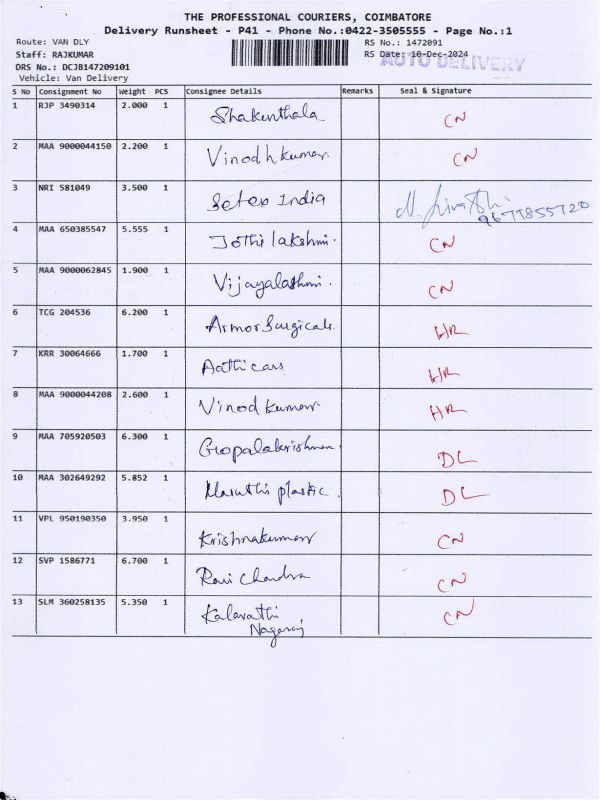 THE PROFESSIONAL COURIERS, COIMBATORE
Delivery Runsheet - P41 - Phone No.:0422-3505555 - Page No.:1
Route: VAN DLY RS No.: 1472091
Staff: RAJKUMAR RS Date: 10-Dec-2024
AUTO DELIVERY
DRS No.: DCJB147209101
Vehicle: Van Delivery
S No Consignment No Weight PCS Consignee Details Remarks Seal & Signature
1 RJP 3490314 2.000 1 Shakunthala CN
2 MAA 9000044150 2.200 1 Vinodhkumar CN
3 NRI 581049 3.500 1 India 9677855720
4 MAA 650385547 5.555 1 Jothi lakshmi. CN
5 MAA 9000062845 1.900 1 Vijayalashmi. CN
6 TCG 204536 6.200 1 Armor Surgicals HR
7 KRR 30064666 1.700 1 Aathi cars HR
8 MAA 9000044208 2.600 1 Vinod kumar HR
9 MAA 705920503 6.300 1 Gopalakrishnan DL
10 MAA 302649292 5.852 1 Maruthi plastic. DL
11 VPL 950190350 3.950 1 Krishnakumar CN
12 SVP 1586771 6.700 1 Ravi Chandra CN
13 SLM 360258135 5.350 1 Kalavathi CN
Nagaraj